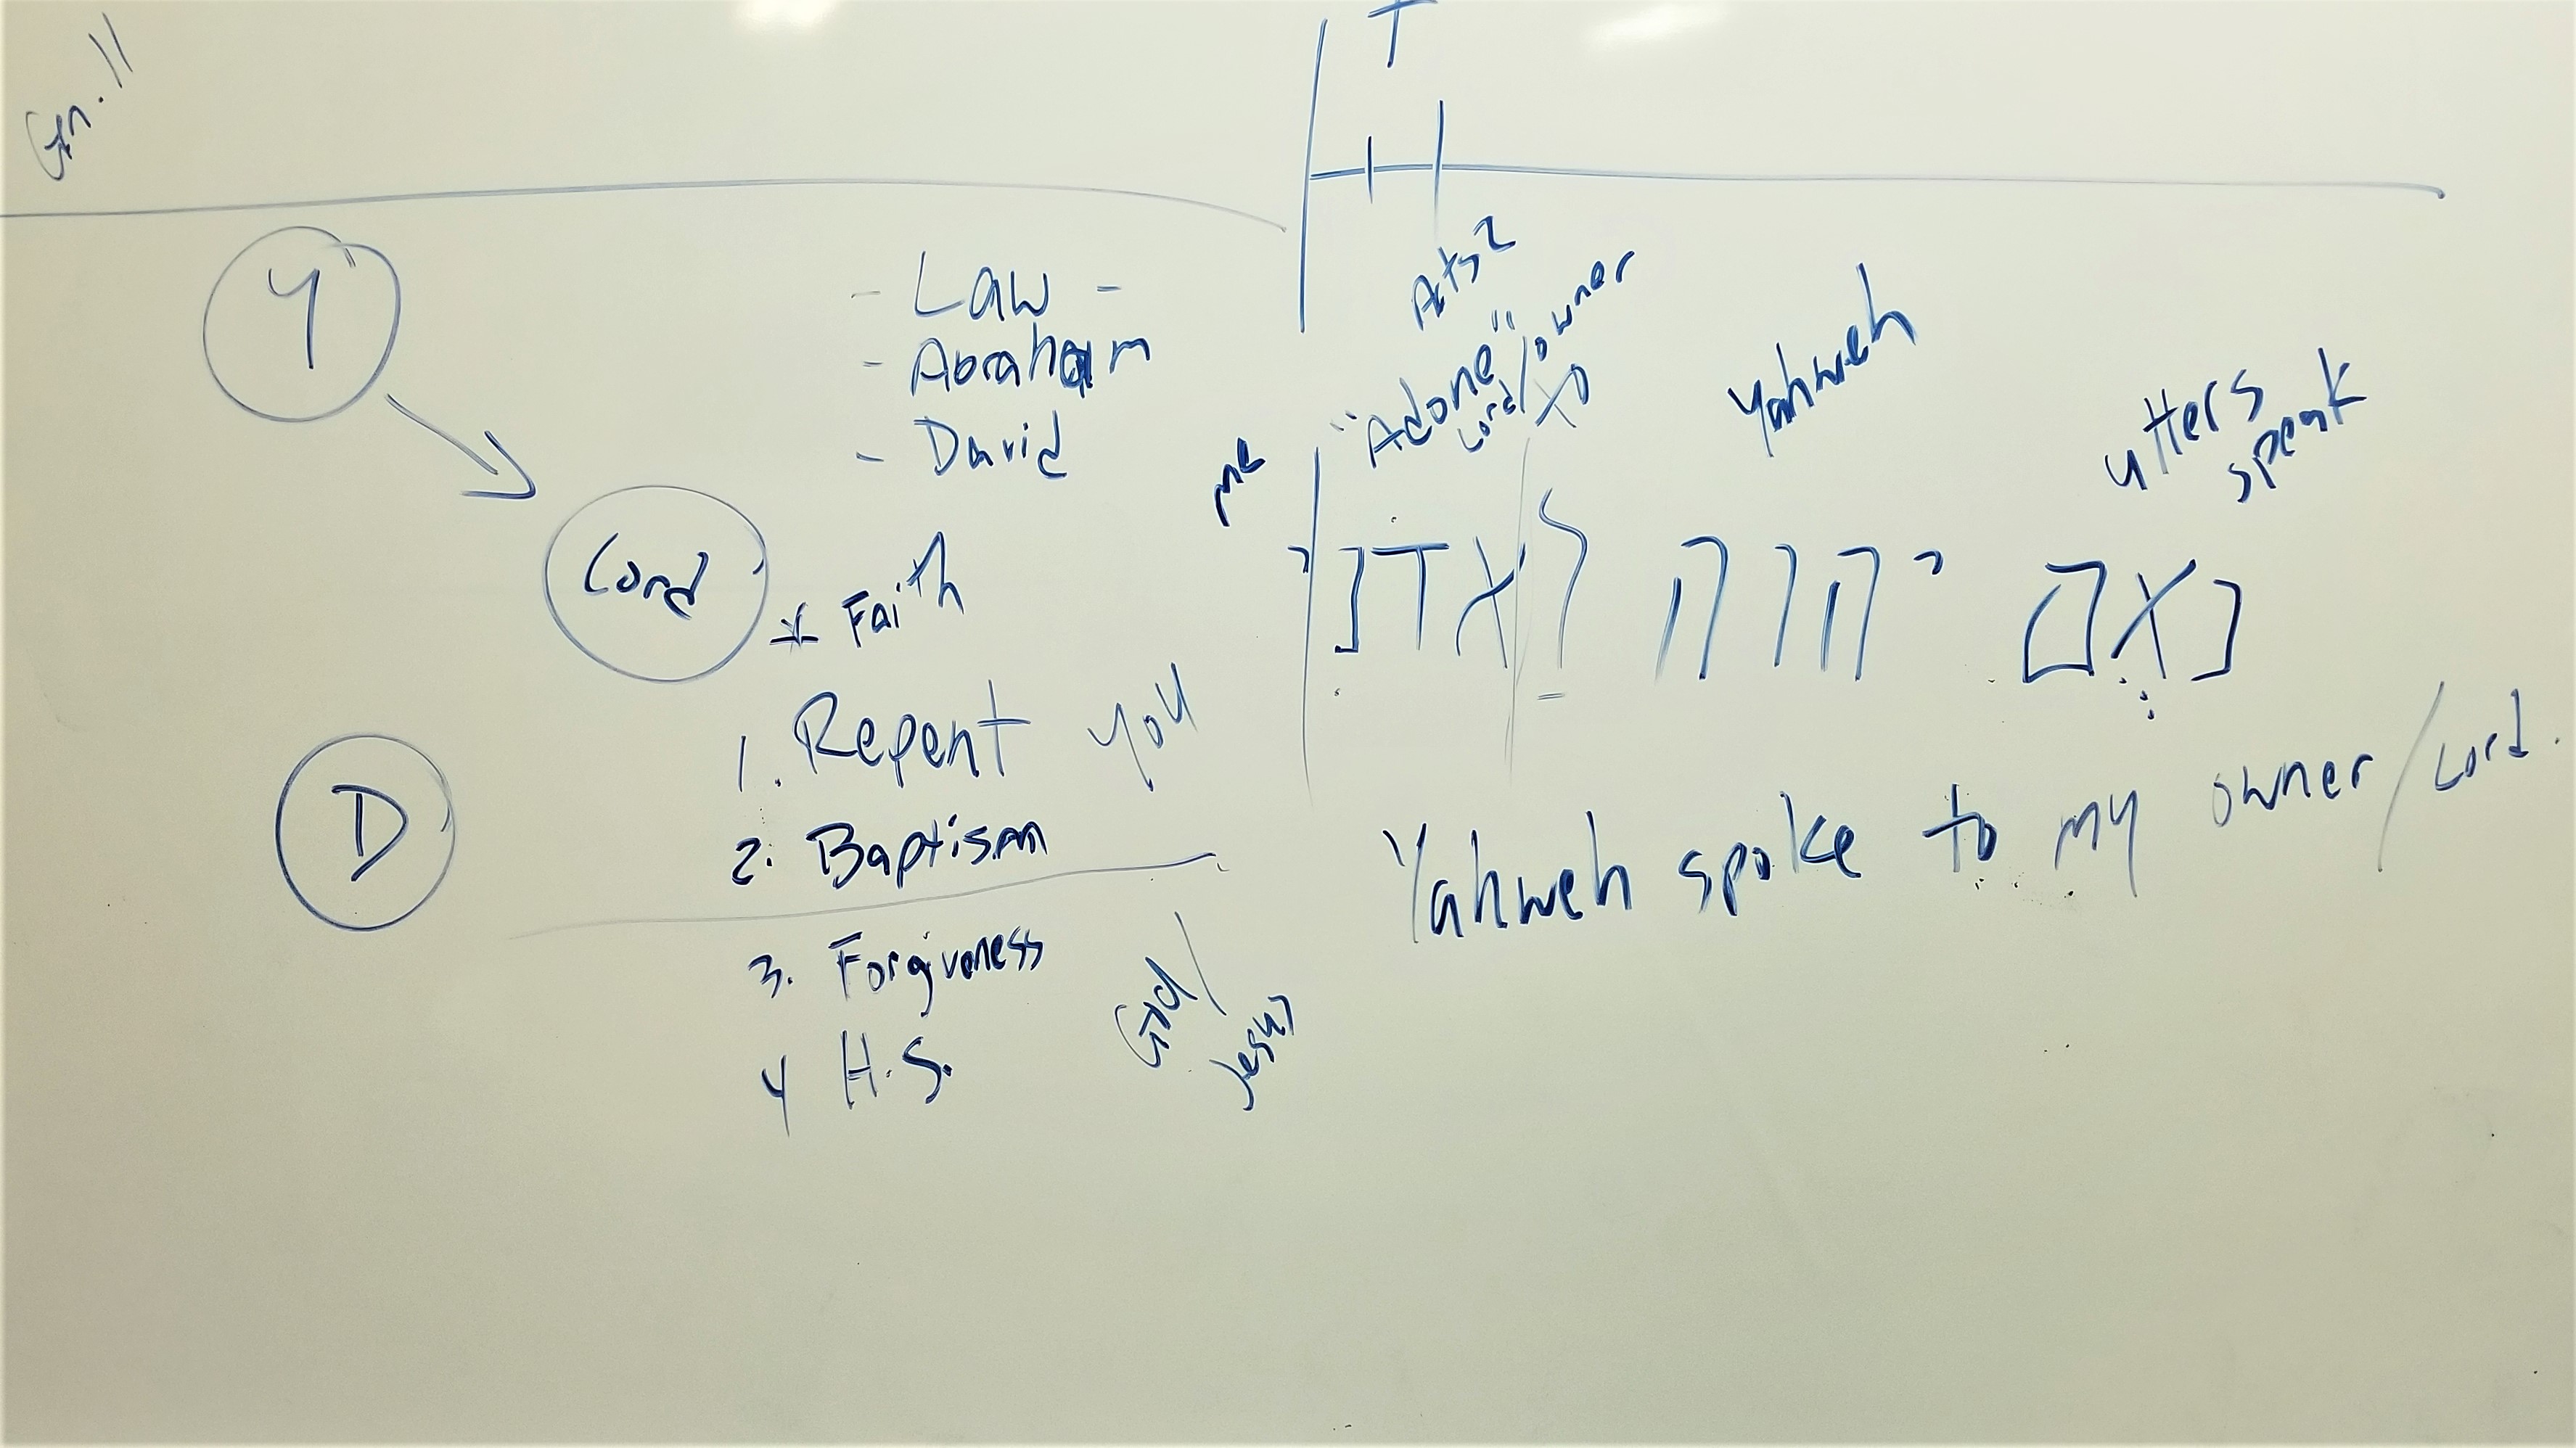 Gn. 11
T
Y
- Law -
- Abraham
- David
Lord
* Faith
1. Repent you
2. Baptism
3. Forgiveness
4 H.S.
God/
Jesus
D
Acts 2
me "Adone" Lord/owner to Yahweh utters speak
נאם יהוה לאדני
Yahweh spoke to my owner/Lord.